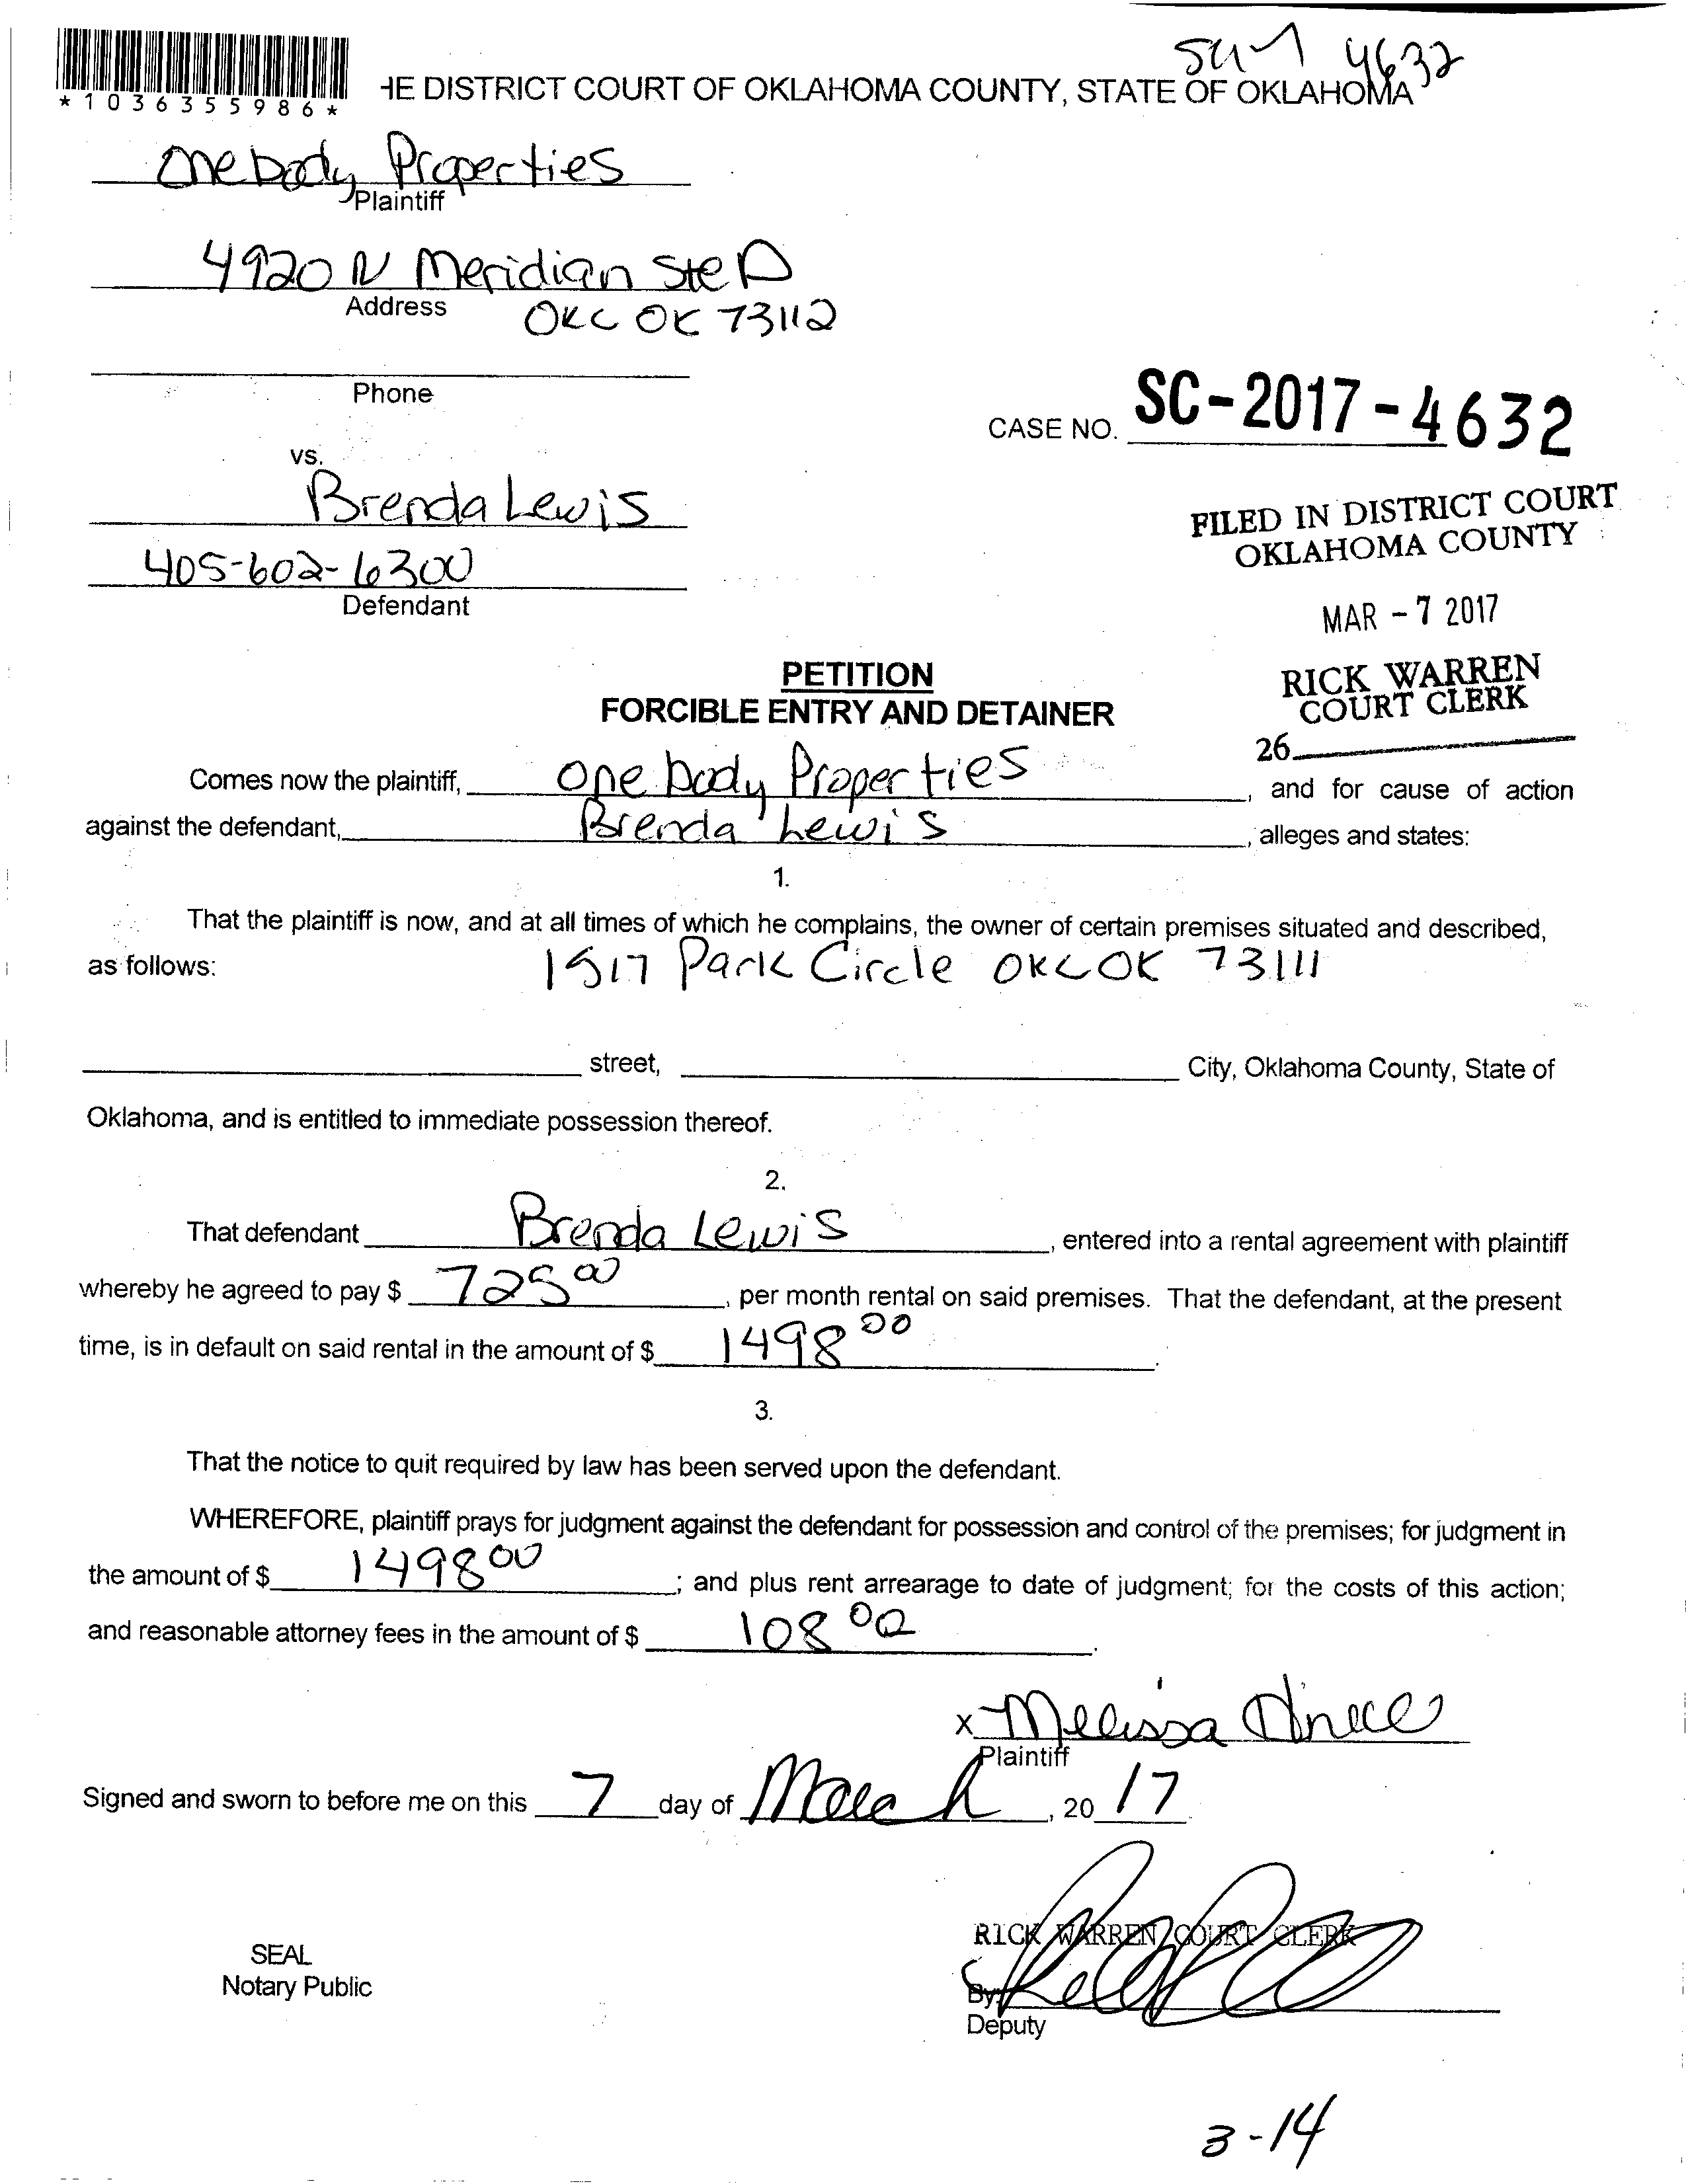 4632
*1036355986*
HE DISTRICT COURT OF OKLAHOMA COUNTY, STATE OF OKLAHOMA
One body Properties
Plaintiff
4920 N Meridian Ste D
Address
OKC OK 73112
Phone
CASE NO. SC-2017-4632
vs.
Brenda Lewis
FILED IN DISTRICT COURT
OKLAHOMA COUNTY
405-602-6300
Defendant
MAR - 7 2017
PETITION
FORCIBLE ENTRY AND DETAINER
RICK WARREN
COURT CLERK
26
Comes now the plaintiff, One body Properties, and for cause of action
against the defendant, Brenda Lewis, alleges and states:
1.
That the plaintiff is now, and at all times of which he complains, the owner of certain premises situated and described,
as follows: 1517 Park Circle OKC OK 73111
street, City, Oklahoma County, State of
Oklahoma, and is entitled to immediate possession thereof.
2.
That defendant Brenda Lewis, entered into a rental agreement with plaintiff
whereby he agreed to pay $ 725 00, per month rental on said premises. That the defendant, at the present
time, is in default on said rental in the amount of $ 1498 00.
3.
That the notice to quit required by law has been served upon the defendant.
WHEREFORE, plaintiff prays for judgment against the defendant for possession and control of the premises; for judgment in
the amount of $ 1498 00; and plus rent arrearage to date of judgment; for the costs of this action;
and reasonable attorney fees in the amount of $ 108 00.
x Melissa
Plaintiff
Signed and sworn to before me on this 7 day of March, 20 17.
RICK WARREN COURT CLERK
SEAL
Notary Public
By:
Deputy
3-14